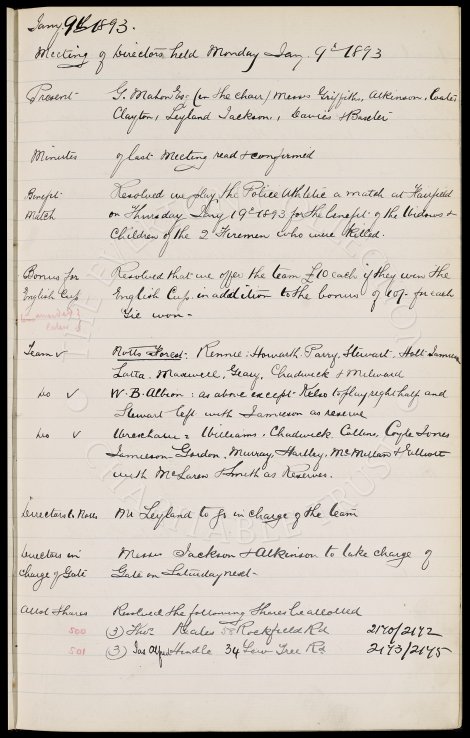 Jany 9th 1893.
Meeting of Directors held Monday Jan. 9th 1893
Present G. Mahon Esqr (in the chair) Messrs Griffiths, Atkinson, Coates
Clayton, Leyland Jackson, Davies & Baxter
Minutes of last Meeting read & confirmed
Benefit Match Resolved we play the Police Athletic a match at Fairfield
on Thursday Jany 19th 1893 for the benefit of the Widows &
Children of the 2 Firemen who were killed.
Bonus for Resolved that we offer the team £10 each if they win the
English Cup English Cup in addition to the bonus of 10/- for each
tie won -
Team v Notts Forest: Rennie: Howarth. Parry, Stewart. Holt Jamieson
Latta. Maxwell, Geary, Chadwick & Milward
Do v W. B. Albion: as above except Kelso to play right half and
Stewart left with Jamieson as reserve
Do v Wrexham: Williams. Chadwick. Collins, Coyle Jones
Jamieson Gordon, Murray, Hartley, McMillan & Elliott
with McLaren & Smith as Reserves.
Directors to Notts Mr Leyland to go in charge of the team
Directors in Messrs Jackson & Atkinson to take charge of
Charge of Gate Gate on Saturday next -
Allot Shares Resolved the following Shares be allotted
500 (3) Thos. Keates 58 Rockfield Rd 2170/2172
501 (3) Jas Alfred Hindle 34 Low Tree Rd 2173/2175